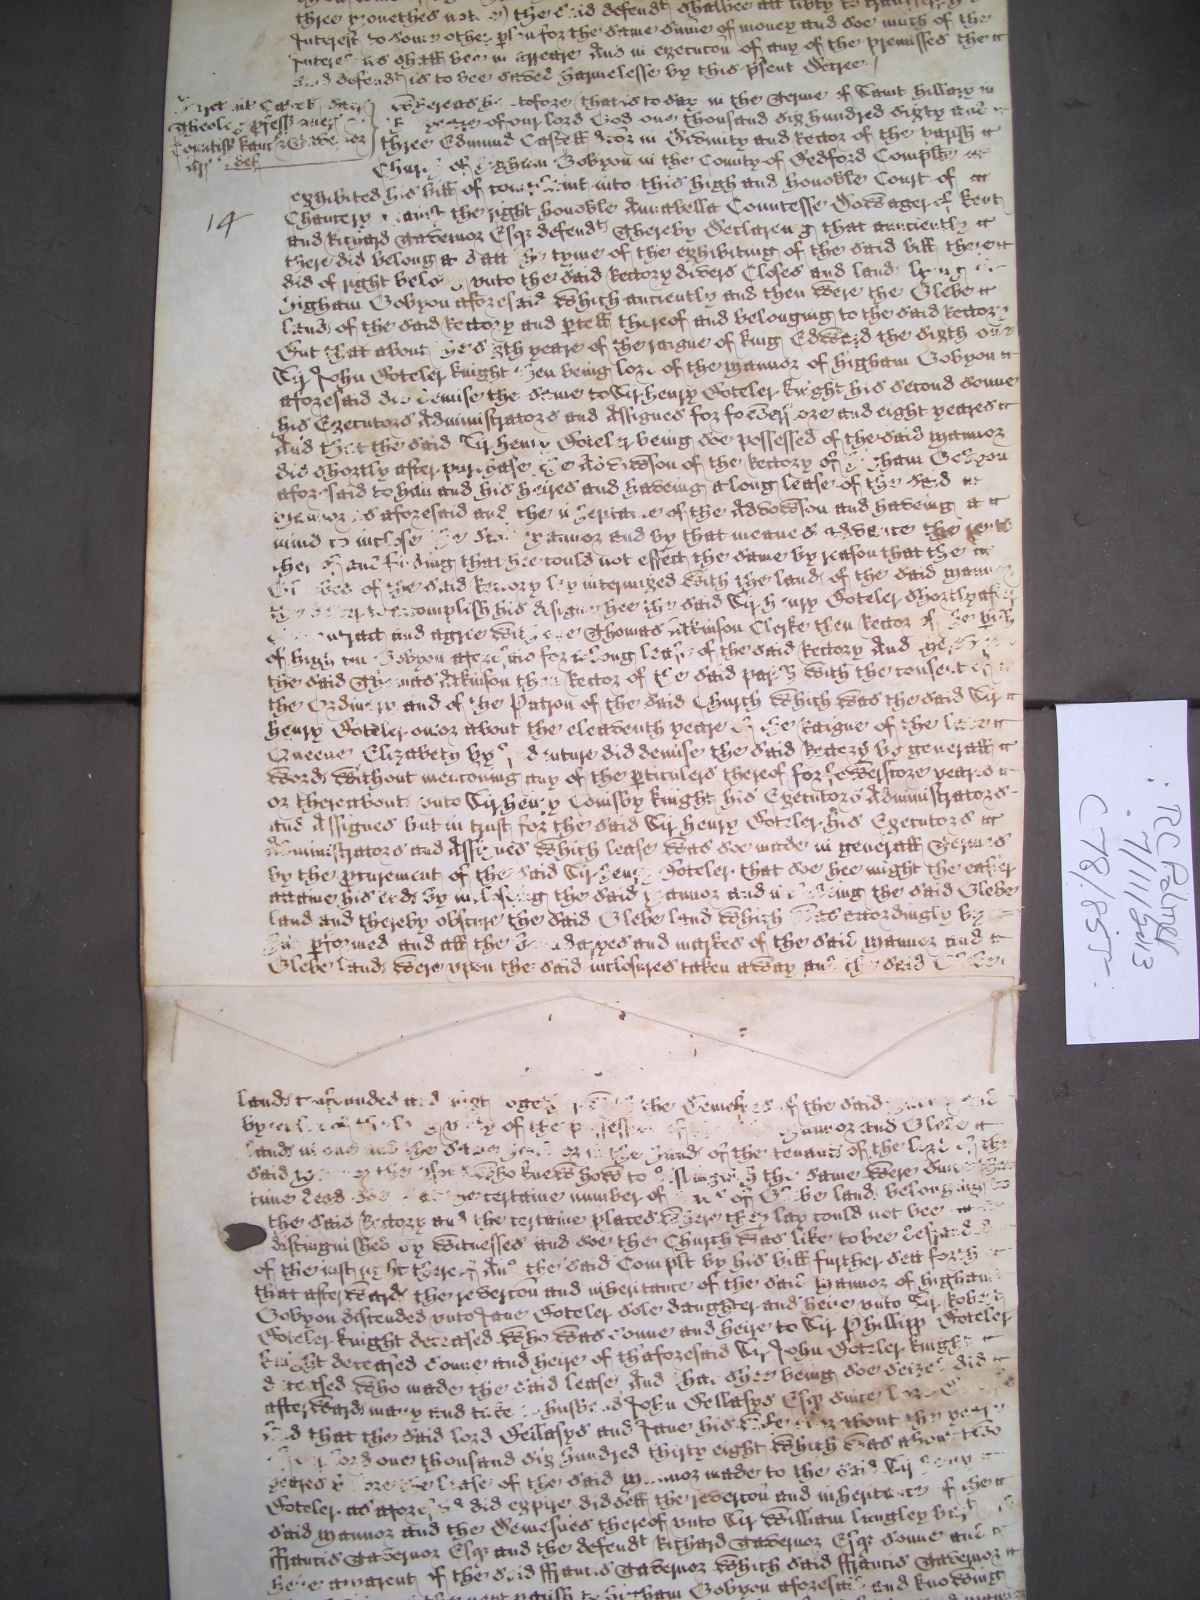 three monethes notice the said defendt shalbee att libty to transferr
Interest to some other pson for the same sume of money and soe much of the
Interest as shall bee in arreare And in execucon of any of the premisses the
said defendt is to bee saved harmelesse by this psent Decree
Whereas heretofore that is to say in the Terme of Saint Hillary in
the yeare of our lord God one thousand six hundred sixty and
three Edmund Castell Dcor in Divinity and Rector of the parish
Church of Higham Gobyon in the County of Bedford Complt
exhibited his bill of complaint into this high and honoble Court of
14
Chancery against the right honoble Annabella Countesse Dowager of Kent
and Richard Tavernor Esqr defendts Thereby Declareing that anciently
there did belong and att the tyme of the exhibiting of the said bill there
did of right belong unto the said Rectory divers Closes and lands lying in
Higham Gobyon aforesaid which anciently and then were the Glebe
lands of the said Rectory and pcell thereof and belonging to the said Rectory
But that about the sixth yeare of the raigne of king Edward the sixth one
Sir John Boteler knight then being lord of the mannor of Higham Gobyon
aforesaid did demise the same to Sir Henry Boteler knight his second sonne
his Executors Administrators and Assignes for fowerscore and eight yeares
And that the said Sir Henry Boteler being soe possessed of the said mannor
did shortly after purchase the Advowson of the Rectory of Higham Gobyon
aforesaid to him and his heires and haveing a long lease of the said
mannor as aforesaid and the inheritance of the Advowson and haveing a
mind to inclose the said mannor and by that meanes advance the rents
thereof and finding that hee could not effect the same by reason that the
Glebes of the said Rectory lay intermixed with the lands of the said mannor
accomplish his designe hee the said Sir Henry Boteler shortly after
contract and agree with one Thomas Atkinson Clerke then Rector of the pish
of Higham Gobyon aforesaid for a long lease of the said Rectory And
the said Thomas Atkinson then Rector of the said parish with the consent of
the Ordinary and of the Patron of the said Church which was the said Sir
Henry Boteler on or about the eleaventh yeare of the Raigne of the late
Queene Elizabeth by Indenture did demise the said Rectory by generall
words without menconing any of the pticulers thereof for fowerscore yeares
or thereabouts unto Sir Henry Conisby knight his Executors Administrators
and Assignes but in trust for the said Sir Henry Boteler his Executors
Administrators and Assignes which lease was soe made in generall Termes
by the pcurement of the said Sir Henry Boteler that soe hee might the easier
attaine his ends by inclosing the said mannor and including the said Glebe
land and thereby obscure the said Glebe land which was accordingly by
him pformed and all the boundaryes and markes of the said mannor and
Glebe lands were upon the said inclosures taken away and the said Glebe
lands the Demesnes of the said
by of the possession of mannor and Glebe
lands the same hands or in the hands of the tenants of the lord of the
said mannor who knew how to distinguish the same were
time dead certaine number of acres of Glebe lands belonging
the said Rectory and the certaine places where they lay could not bee
distinguished by witnesses and soe the Church was like to bee
of the iust right thereof And the said Complt by his bill further sett forth
that afterwards the revercon and inheritance of the said mannor of Higham
Gobyon discended unto Jane Boteler sole daughter and heire unto Sir Robert
Boteler knight deceased who was sonne and heire to Sir Phillipp Boteler
knight deceased sonne and heire of thaforesaid Sir John Boteler knight
deceased who made the said lease And that shee being soe seized did
afterwards marry and take to husband John Bellasys Esqr since lord
And that the said lord Bellasys and Jane his wife about the yeare
lord one thousand six hundred thirty eight which was about two
yeares before the lease of the said mannor made to the said Sir Henry
Boteler as aforesaid did expire did sell the revercon and inheritance of the
said mannor and the demesnes thereof unto Sir William Langley
ffrancis Tavernor Esqr and the defendt Richard Tavernor Esqr sonne and
heire apparent of the said ffrancis Tavernor which said ffrancis Tavernor
the next parish to Higham Gobyon aforesaid and knowing
RC Palmer
7/11/2013
C78/855